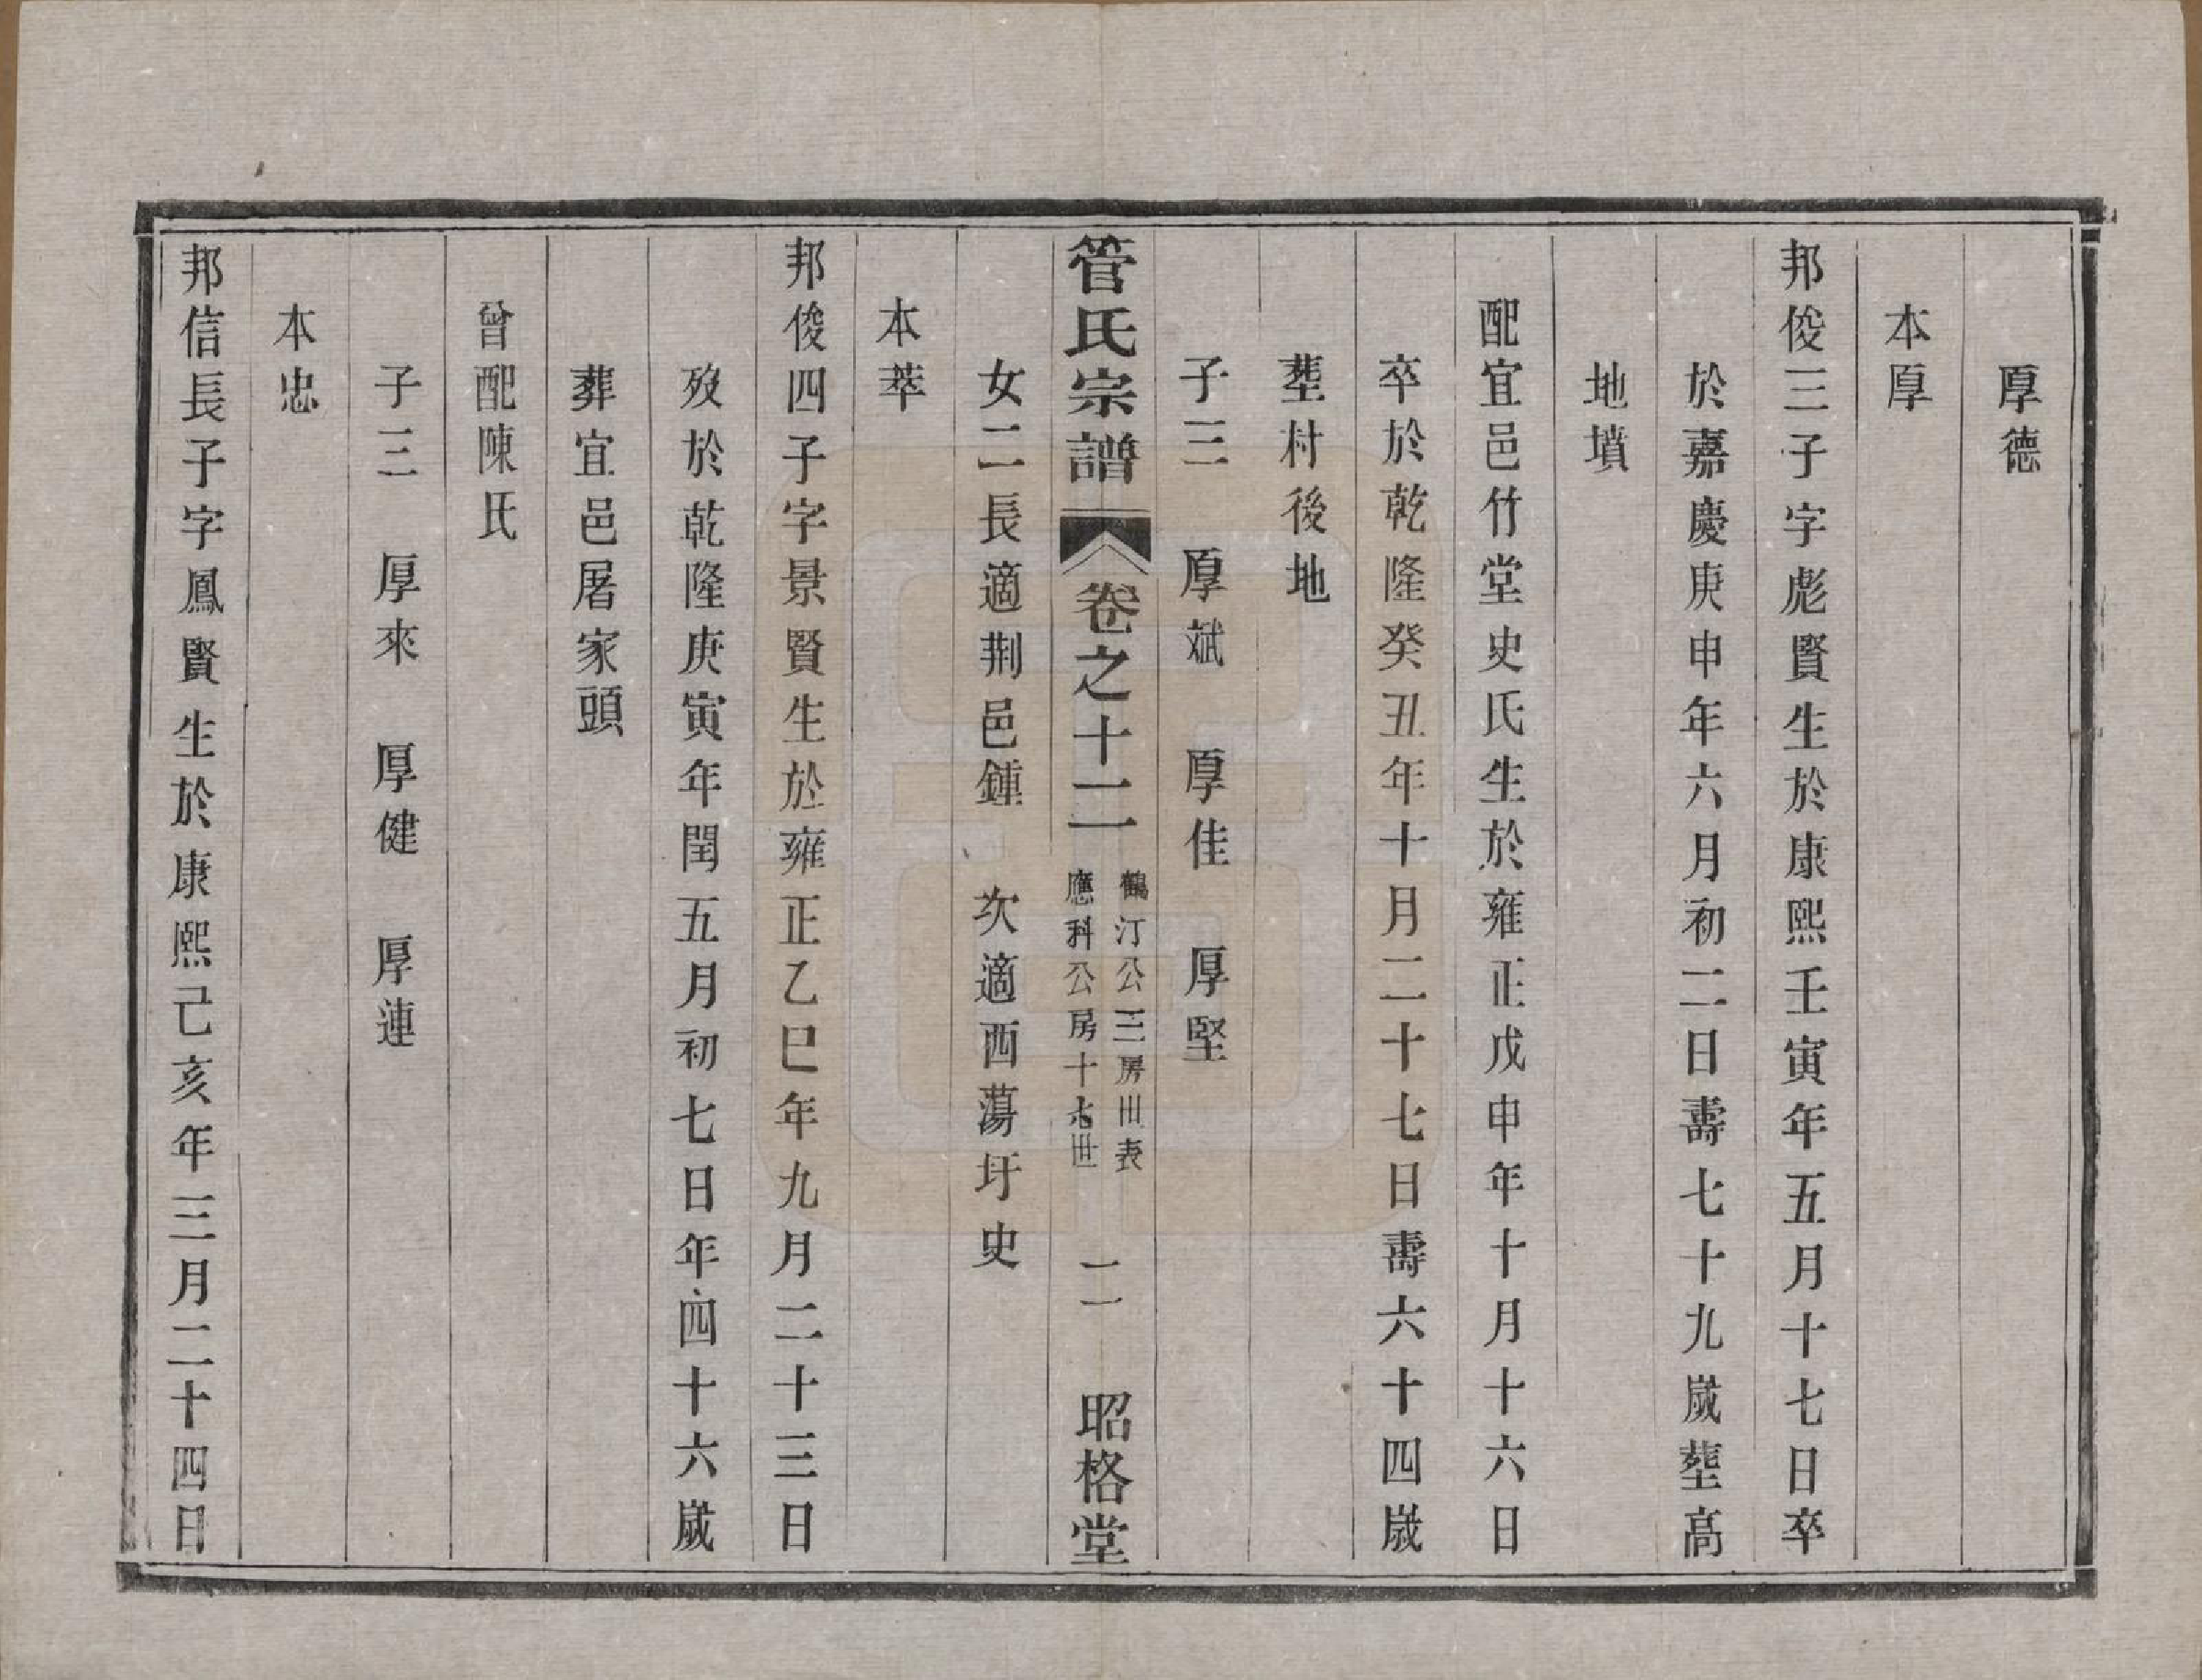 厚德
本厚
邦俊三子字彪賢生於康熙壬寅年五月十七日卒
於嘉慶庚申年六月初二日壽七十九歲塟高
地墳
配宜邑竹堂史氏生於雍正戊申年十月十六日
卒於乾隆癸丑年十月二十七日壽六十四歲
塟村後地
子三　厚斌　厚佳　厚堅
管氏宗譜　卷之十二　鶴汀公三房卅表　應科公房十六世　二　昭格堂
女二長適荆邑鍾　次適西蕩圩史
本萃
邦俊四子字景賢生於雍正乙巳年九月二十三日
歿於乾隆庚寅年閏五月初七日年四十六歲
葬宜邑屠家頭
曾配陳氏
子三　厚來　厚健　厚連
本忠
邦信長子字鳳賢生於康熙己亥年三月二十四日